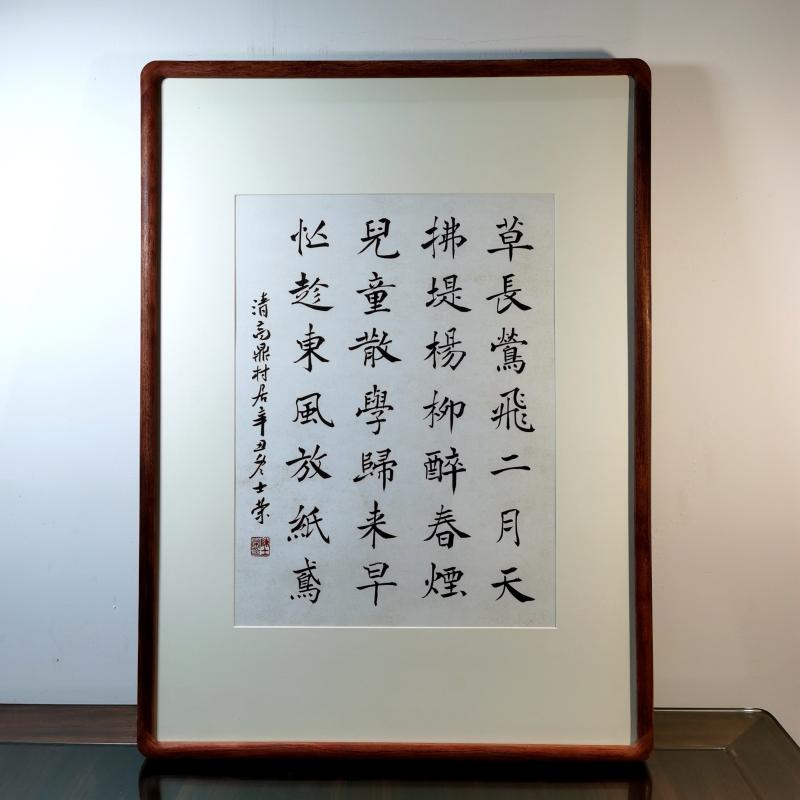 草長鶯飛二月天
拂堤楊柳醉春煙
兒童散學歸来早
忙趁東風放紙鳶
清高鼎村居辛丑冬士荣